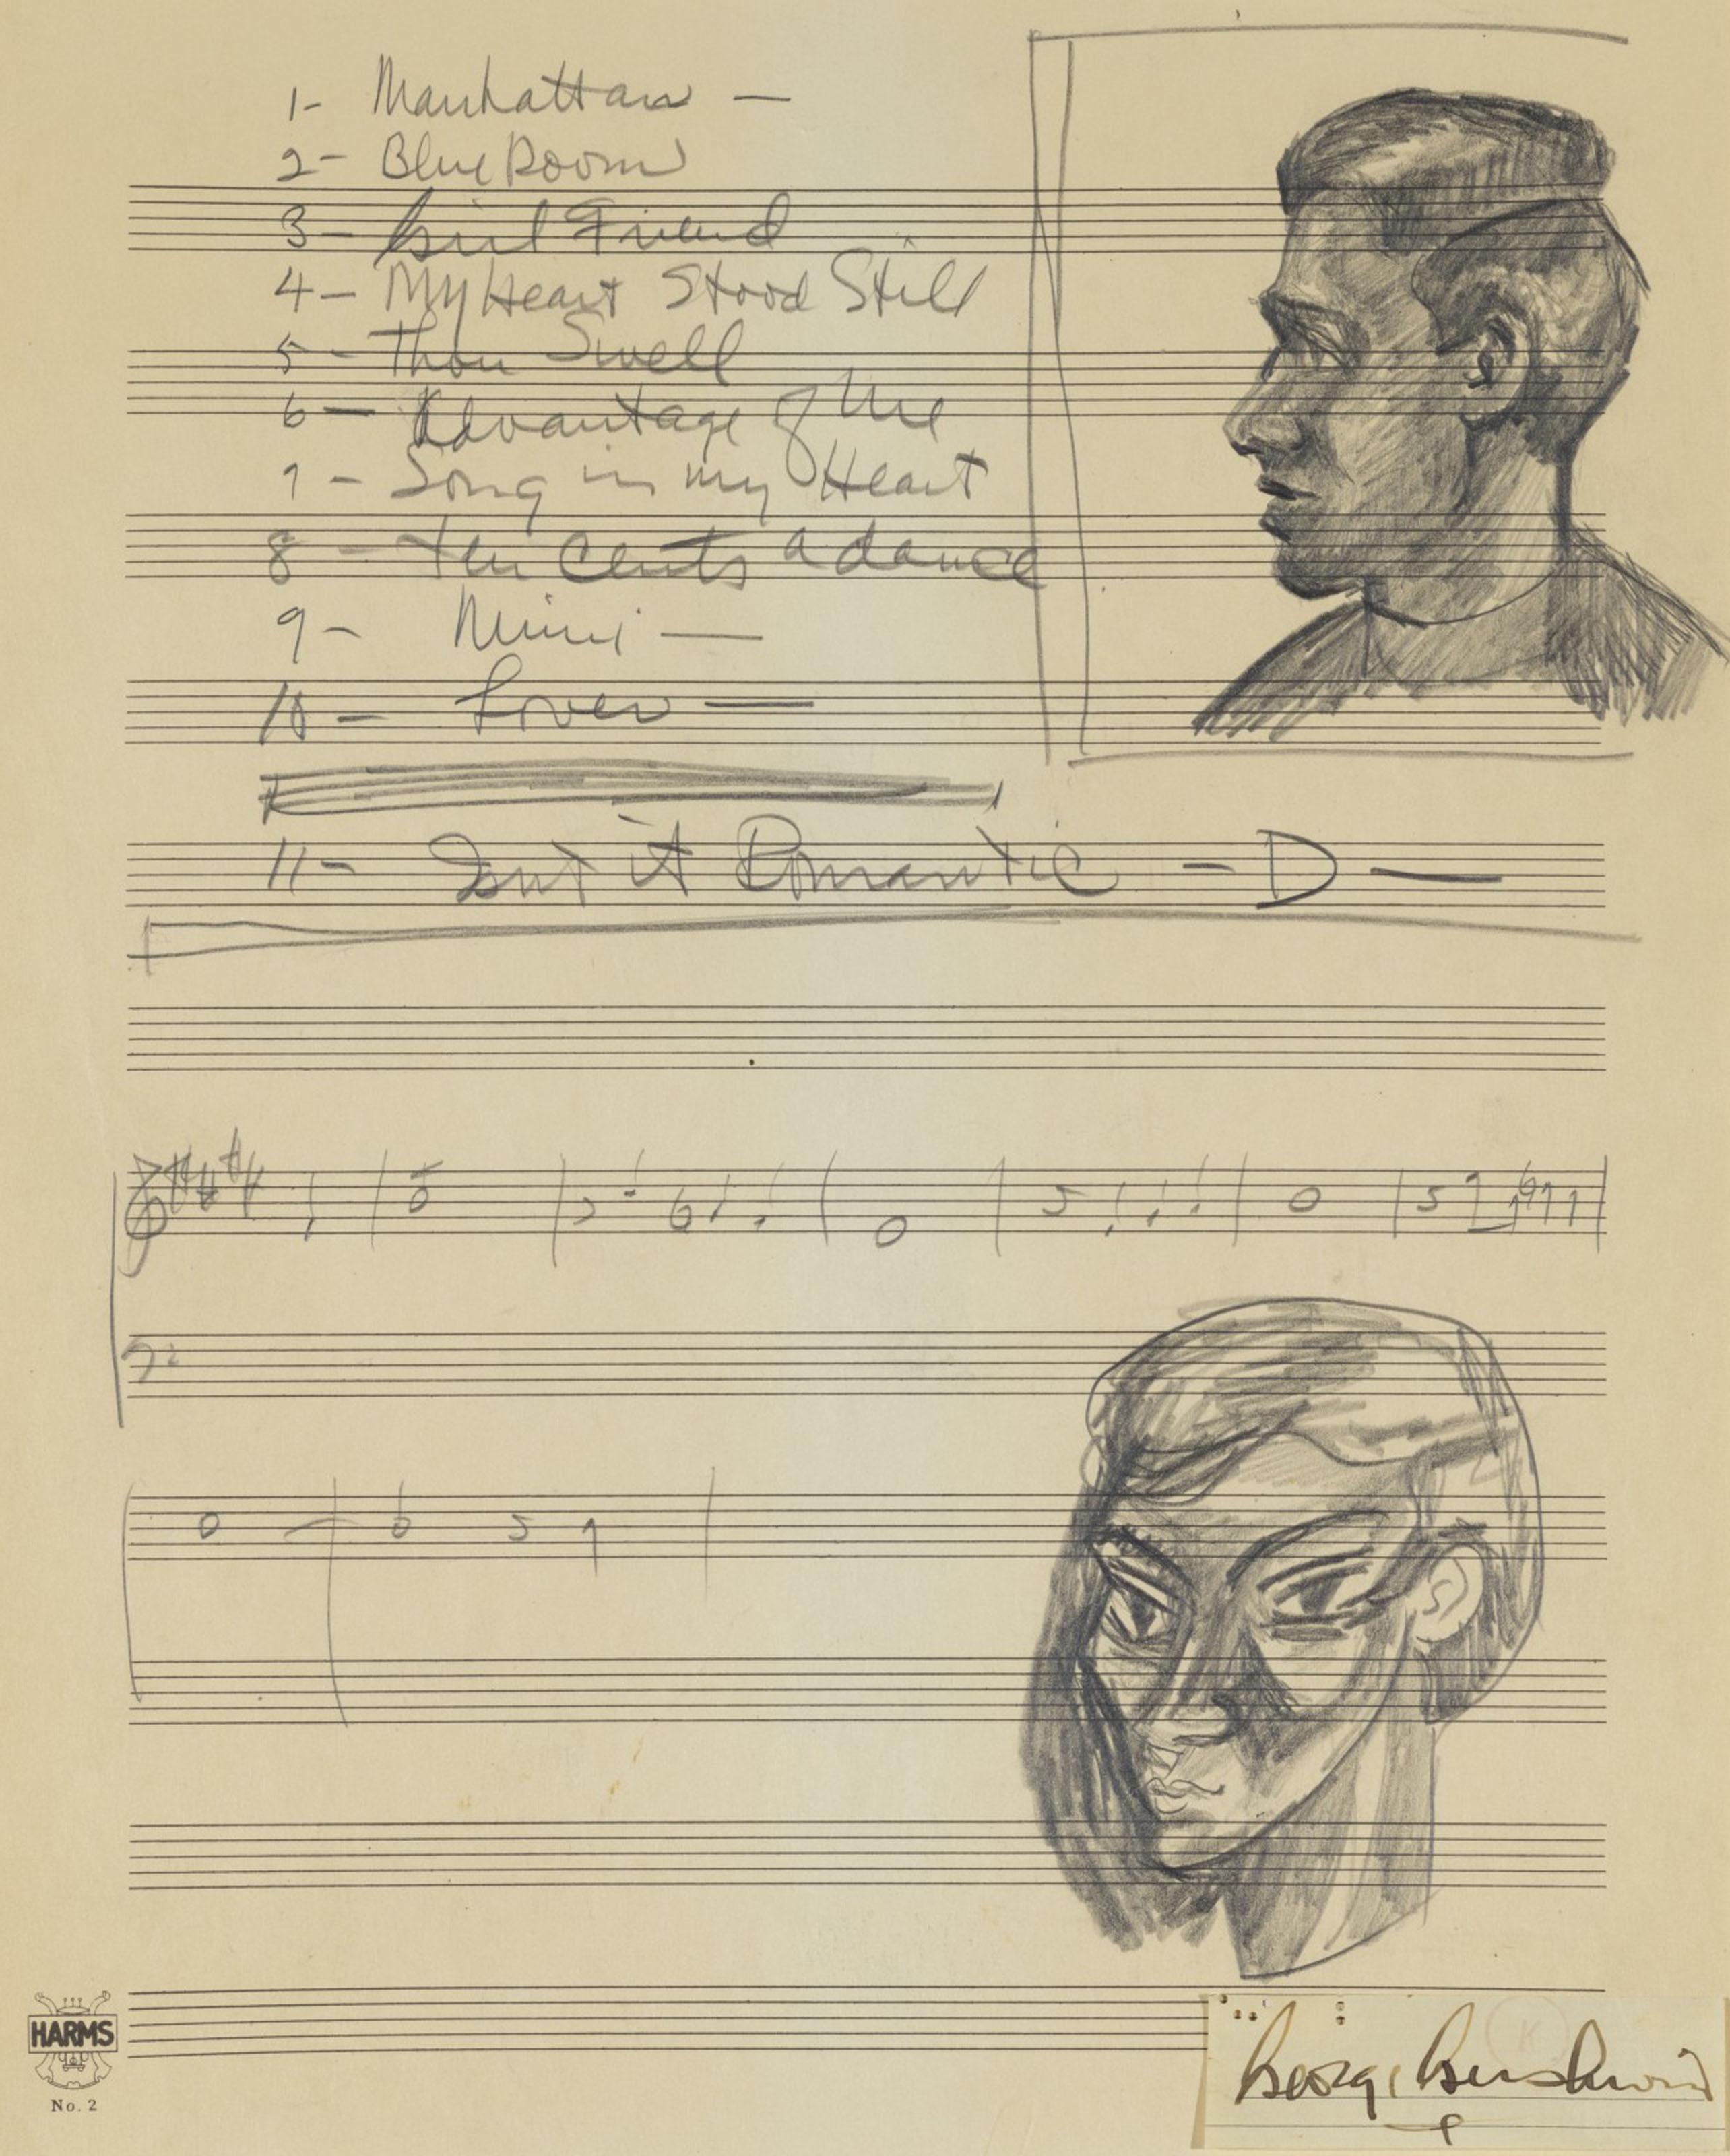 1- Manhattan —
2- Blue Room
3- Girl Friend
4- My Heart Stood Still
5- Thou Swell
6- Advantage of Me
7- Song in my Heart
8- Ten Cents a dance
9- Mimi —
10- Lover —
11- Isn't it Romantic - D —
HARMS
No. 2
K
George Gershwin